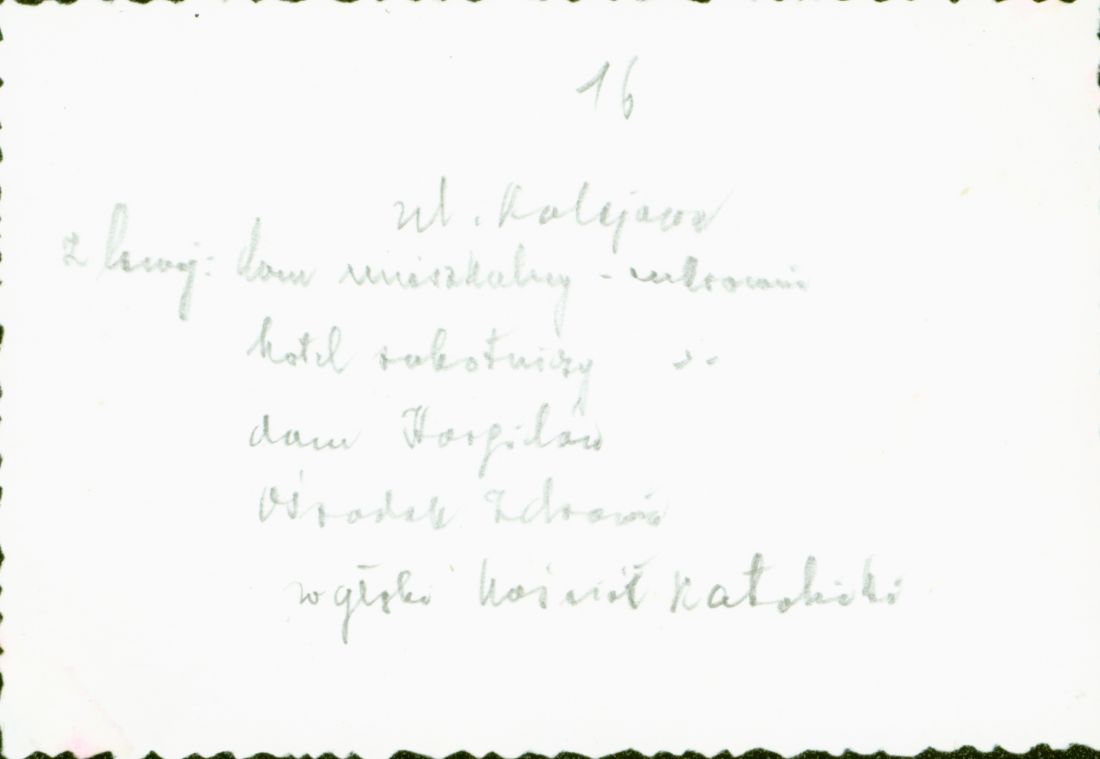 16
ul. Kolejowa
Z lewej: dom mieszkalny - cukrowni
hotel robotniczy -"-
dom
Ośrodek Zdrowia
w głębi Kościół Katolicki